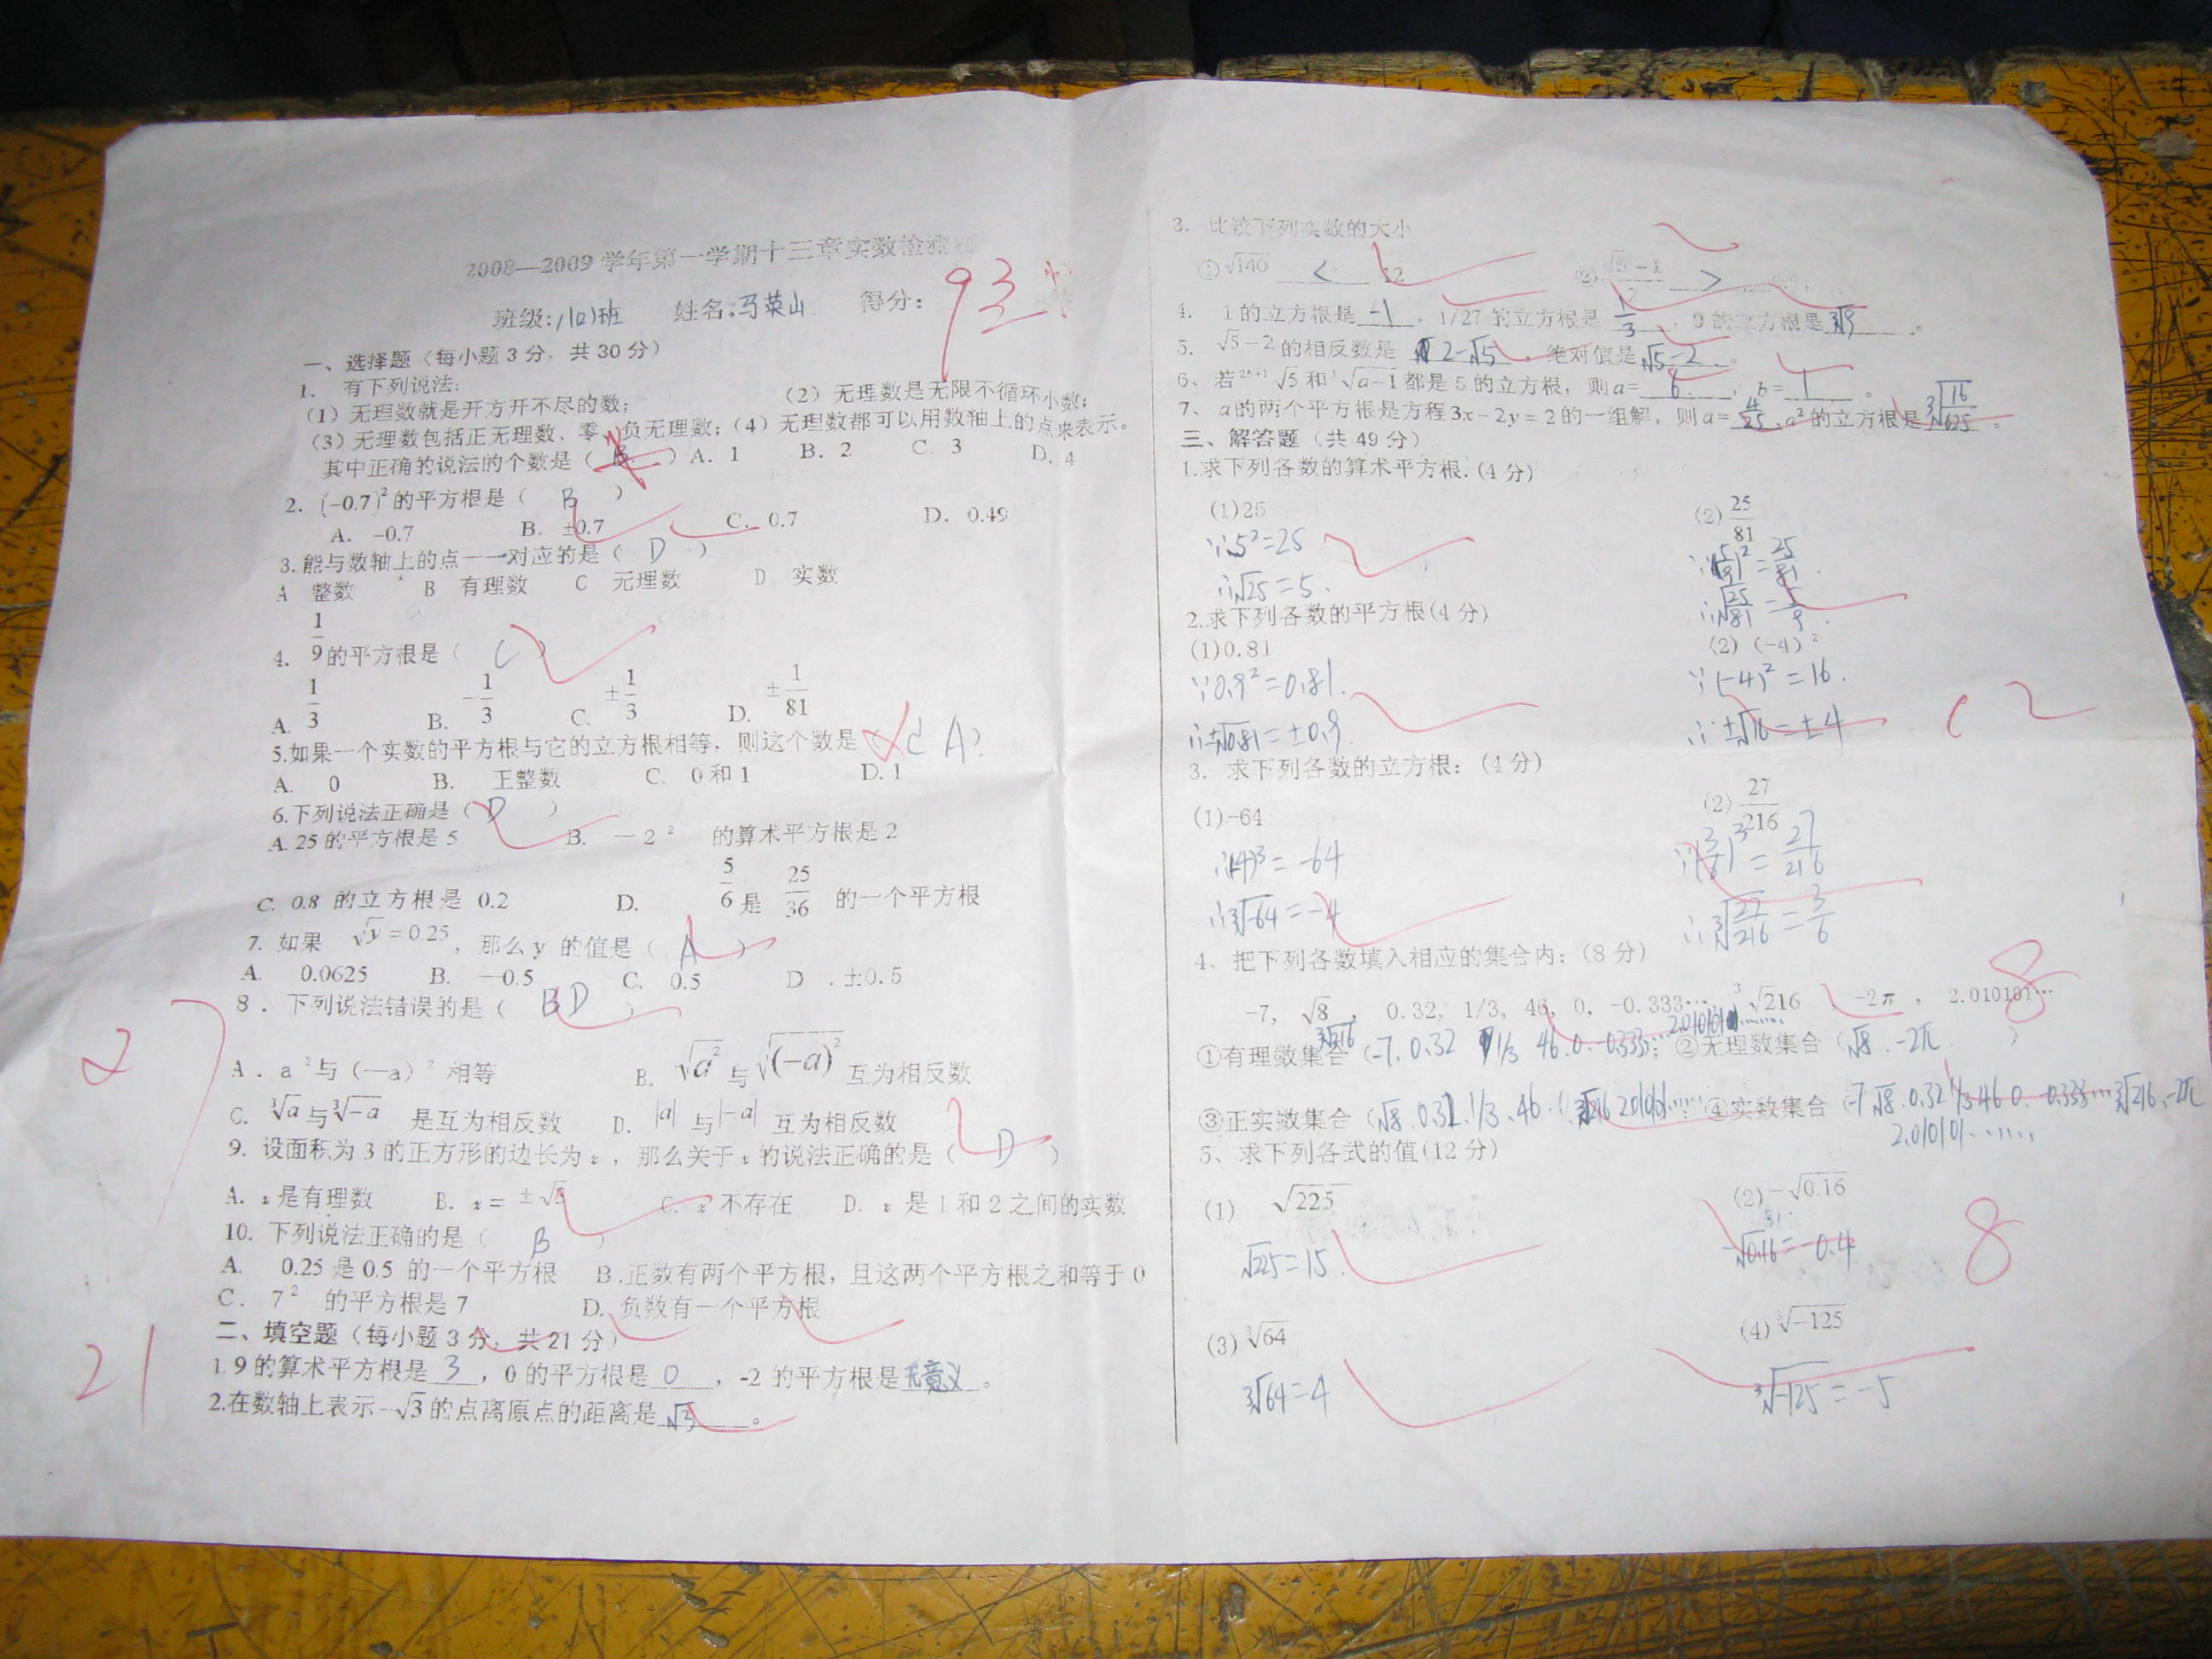 2008—2009学年第一学期十三章实数检测
班级:1(2)班 姓名:马英山 得分: 93
一、选择题（每小题3分，共30分）
1. 有下列说法:
（1）无理数就是开方开不尽的数; （2）无理数是无限不循环小数;
（3）无理数包括正无理数、零、负无理数;（4）无理数都可以用数轴上的点来表示。
其中正确的说法的个数是（ B ）A. 1 B. 2 C. 3 D. 4
2. (−0.7)²的平方根是（ B ）
A. −0.7 B. ±0.7 C. 0.7 D. 0.49
3.能与数轴上的点一一对应的是（ D ）
A 整数 B 有理数 C 无理数 D 实数
4. 1/9的平方根是（ C ）
A. 1/3 B. −1/3 C. ±1/3 D. ±1/81
5.如果一个实数的平方根与它的立方根相等，则这个数是（ C A ）
A. 0 B. 正整数 C. 0和1 D. 1
6.下列说法正确是（ D ）
A.25的平方根是5 B. −2² 的算术平方根是2
C. 0.8的立方根是0.2 D. 5/6是 25/36 的一个平方根
7. 如果 √y=0.25，那么y 的值是（ A ）
A. 0.0625 B. —0.5 C. 0.5 D .±0.5
27
8．下列说法错误的是（ BD ）
A．a²与（—a）²相等 B. √a²与√(−a)²互为相反数
C. ∛a与∛−a 是互为相反数 D. |a|与|−a|互为相反数
9. 设面积为3的正方形的边长为x，那么关于x的说法正确的是（ D ）
A. x是有理数 B. x=±√3 C. x不存在 D. x是1和2之间的实数
10. 下列说法正确的是（ B ）
A. 0.25是0.5 的一个平方根 B.正数有两个平方根，且这两个平方根之和等于0
C. 7² 的平方根是7 D. 负数有一个平方根
二、填空题（每小题3分，共21分）
21
1.9的算术平方根是 3 ，0的平方根是 0 ，-2的平方根是无意义。
2.在数轴上表示−√3的点离原点的距离是 √3 。
3. 比较下列实数的大小
①√140 < 12 ② >
4. 1的立方根是 -1 ，1/27的立方根是 1/3 ，9的立方根是 ∛9 。
5. √5−2的相反数是 2-√5 ，绝对值是 √5-2 。
6、若 √5和 √a−1都是5的立方根，则a= 6 ，b= 1 。
7、a的两个平方根是方程3x−2y=2的一组解，则a= 4/25 ，a²的立方根是 ∛16/625 。
三、解答题（共49分）
1.求下列各数的算术平方根.(4分)
(1)25 (2) 25/81
∵5²=25 ∵(5/9)²=25/81
∴√25=5. ∴√25/81=5/9
2.求下列各数的平方根(4分)
(1)0.81 (2)（-4）²
∵0.9²=0.81. ∵(-4)²=16.
∴±√0.81=±0.9 ∴±√16=±4
12
3. 求下列各数的立方根:（4分）
(1)-64 (2) 27/216
∵(-4)³=-64 ∵(3/6)³=27/216
∴∛-64=-4 ∴∛27/216=3/6
4、把下列各数填入相应的集合内:（8分）
8
-7, √8, 0.32, 1/3, 46, 0, -0.333…, ∛216 −2π, 2.010101…
①有理数集合（-7. 0.32 1/3 46. 0. -0.333… ∛216 2.010101……）; ②无理数集合（√8. -2π ）
③正实数集合（√8. 0.32. 1/3. 46. ∛216 2.010101……）; ④实数集合（-7 √8. 0.32 1/3 46 0. -0.333… ∛216. -2π
2.010101……
5、求下列各式的值(12分)
(1) √225 (2) −√0.16
√225=15. -√0.16=-0.4
8
(3) ∛64 (4) ∛−125
∛64=4 ∛-125=-5